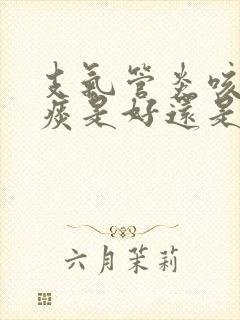 支氣管炎咳
痰是好還是
六月茉莉